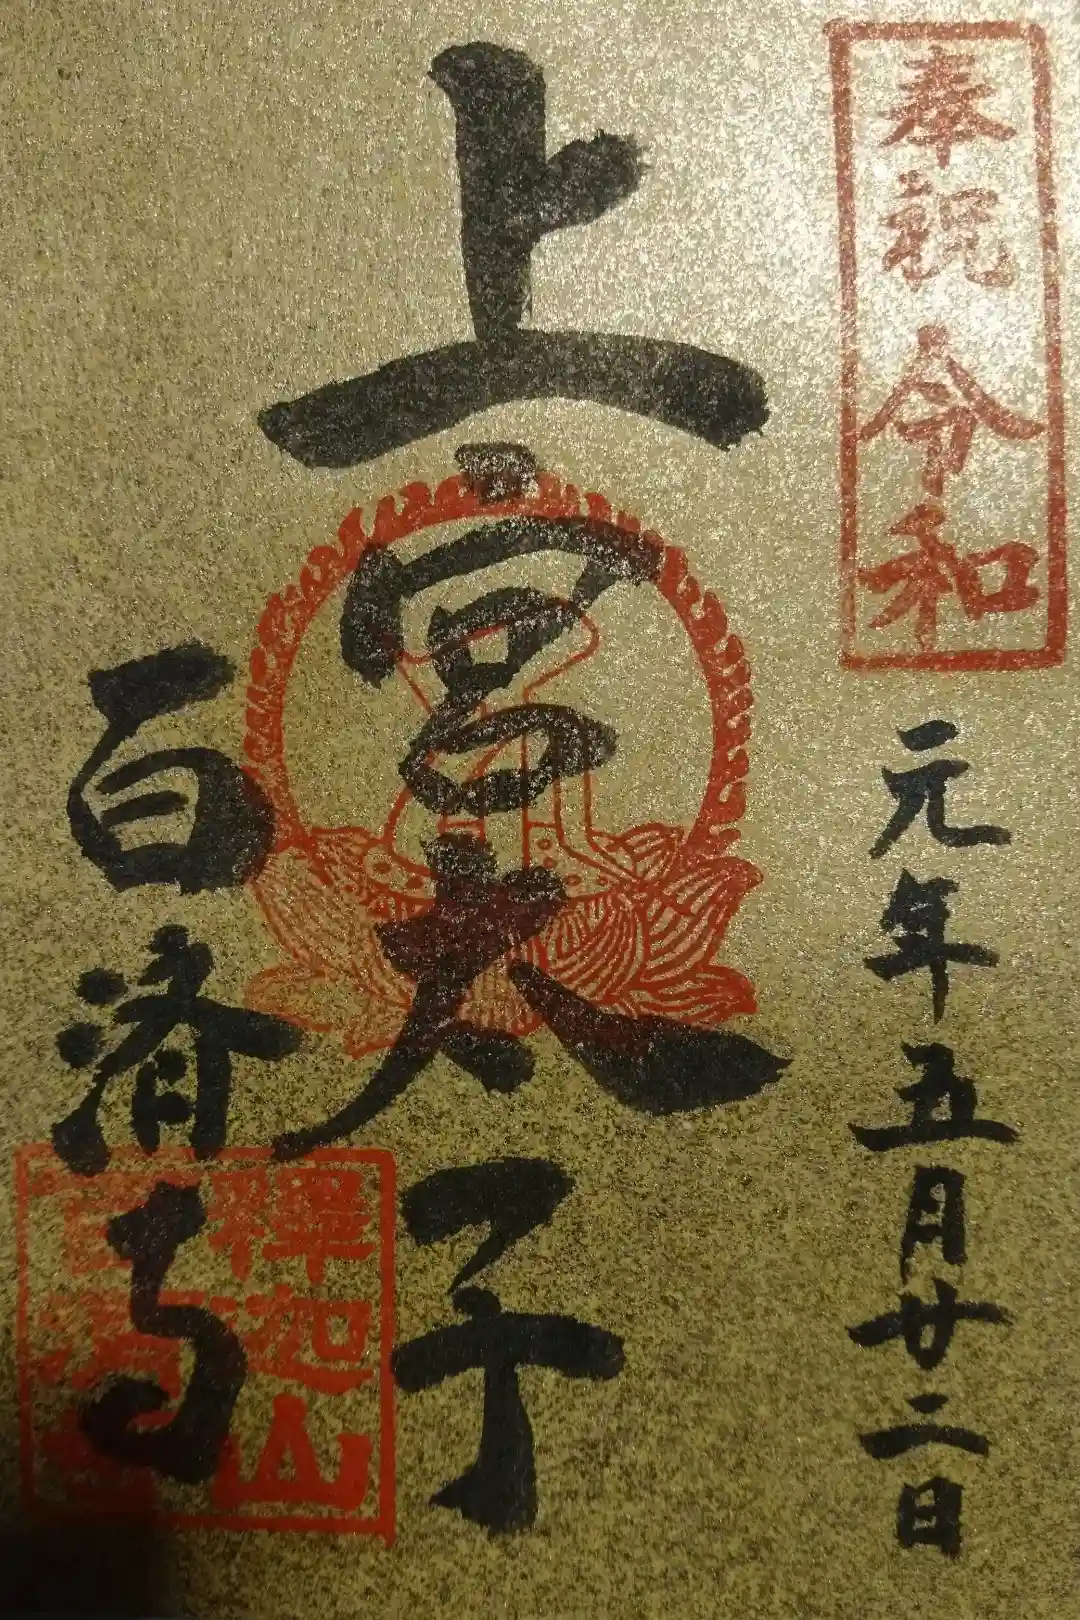 奉祝令和
元年五月廿二日
上宮太子
百済寺
釋迦山
百済寺